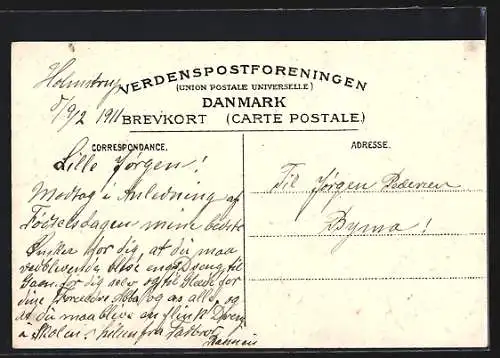 Holmstrup
d/9/2 1911
VERDENSPOSTFORENINGEN
(UNION POSTALE UNIVERSELLE)
DANMARK
BREVKORT (CARTE POSTALE.)
CORRESPONDANCE.
Lille Jørgen!
Modtag i Anledning af
Fødselsdagen mine bedste
Ønsker for dig, at du maa
vedblivende blive en god Dreng til
Gavn for dig selv og til Glæde for
dine Forældre og as alle, og
at du maa blive en flink Dreng
i Skolen. hilsen fra Farbror
Rasmus
ADRESSE.
Til Jørgen Pedersen
Byma!